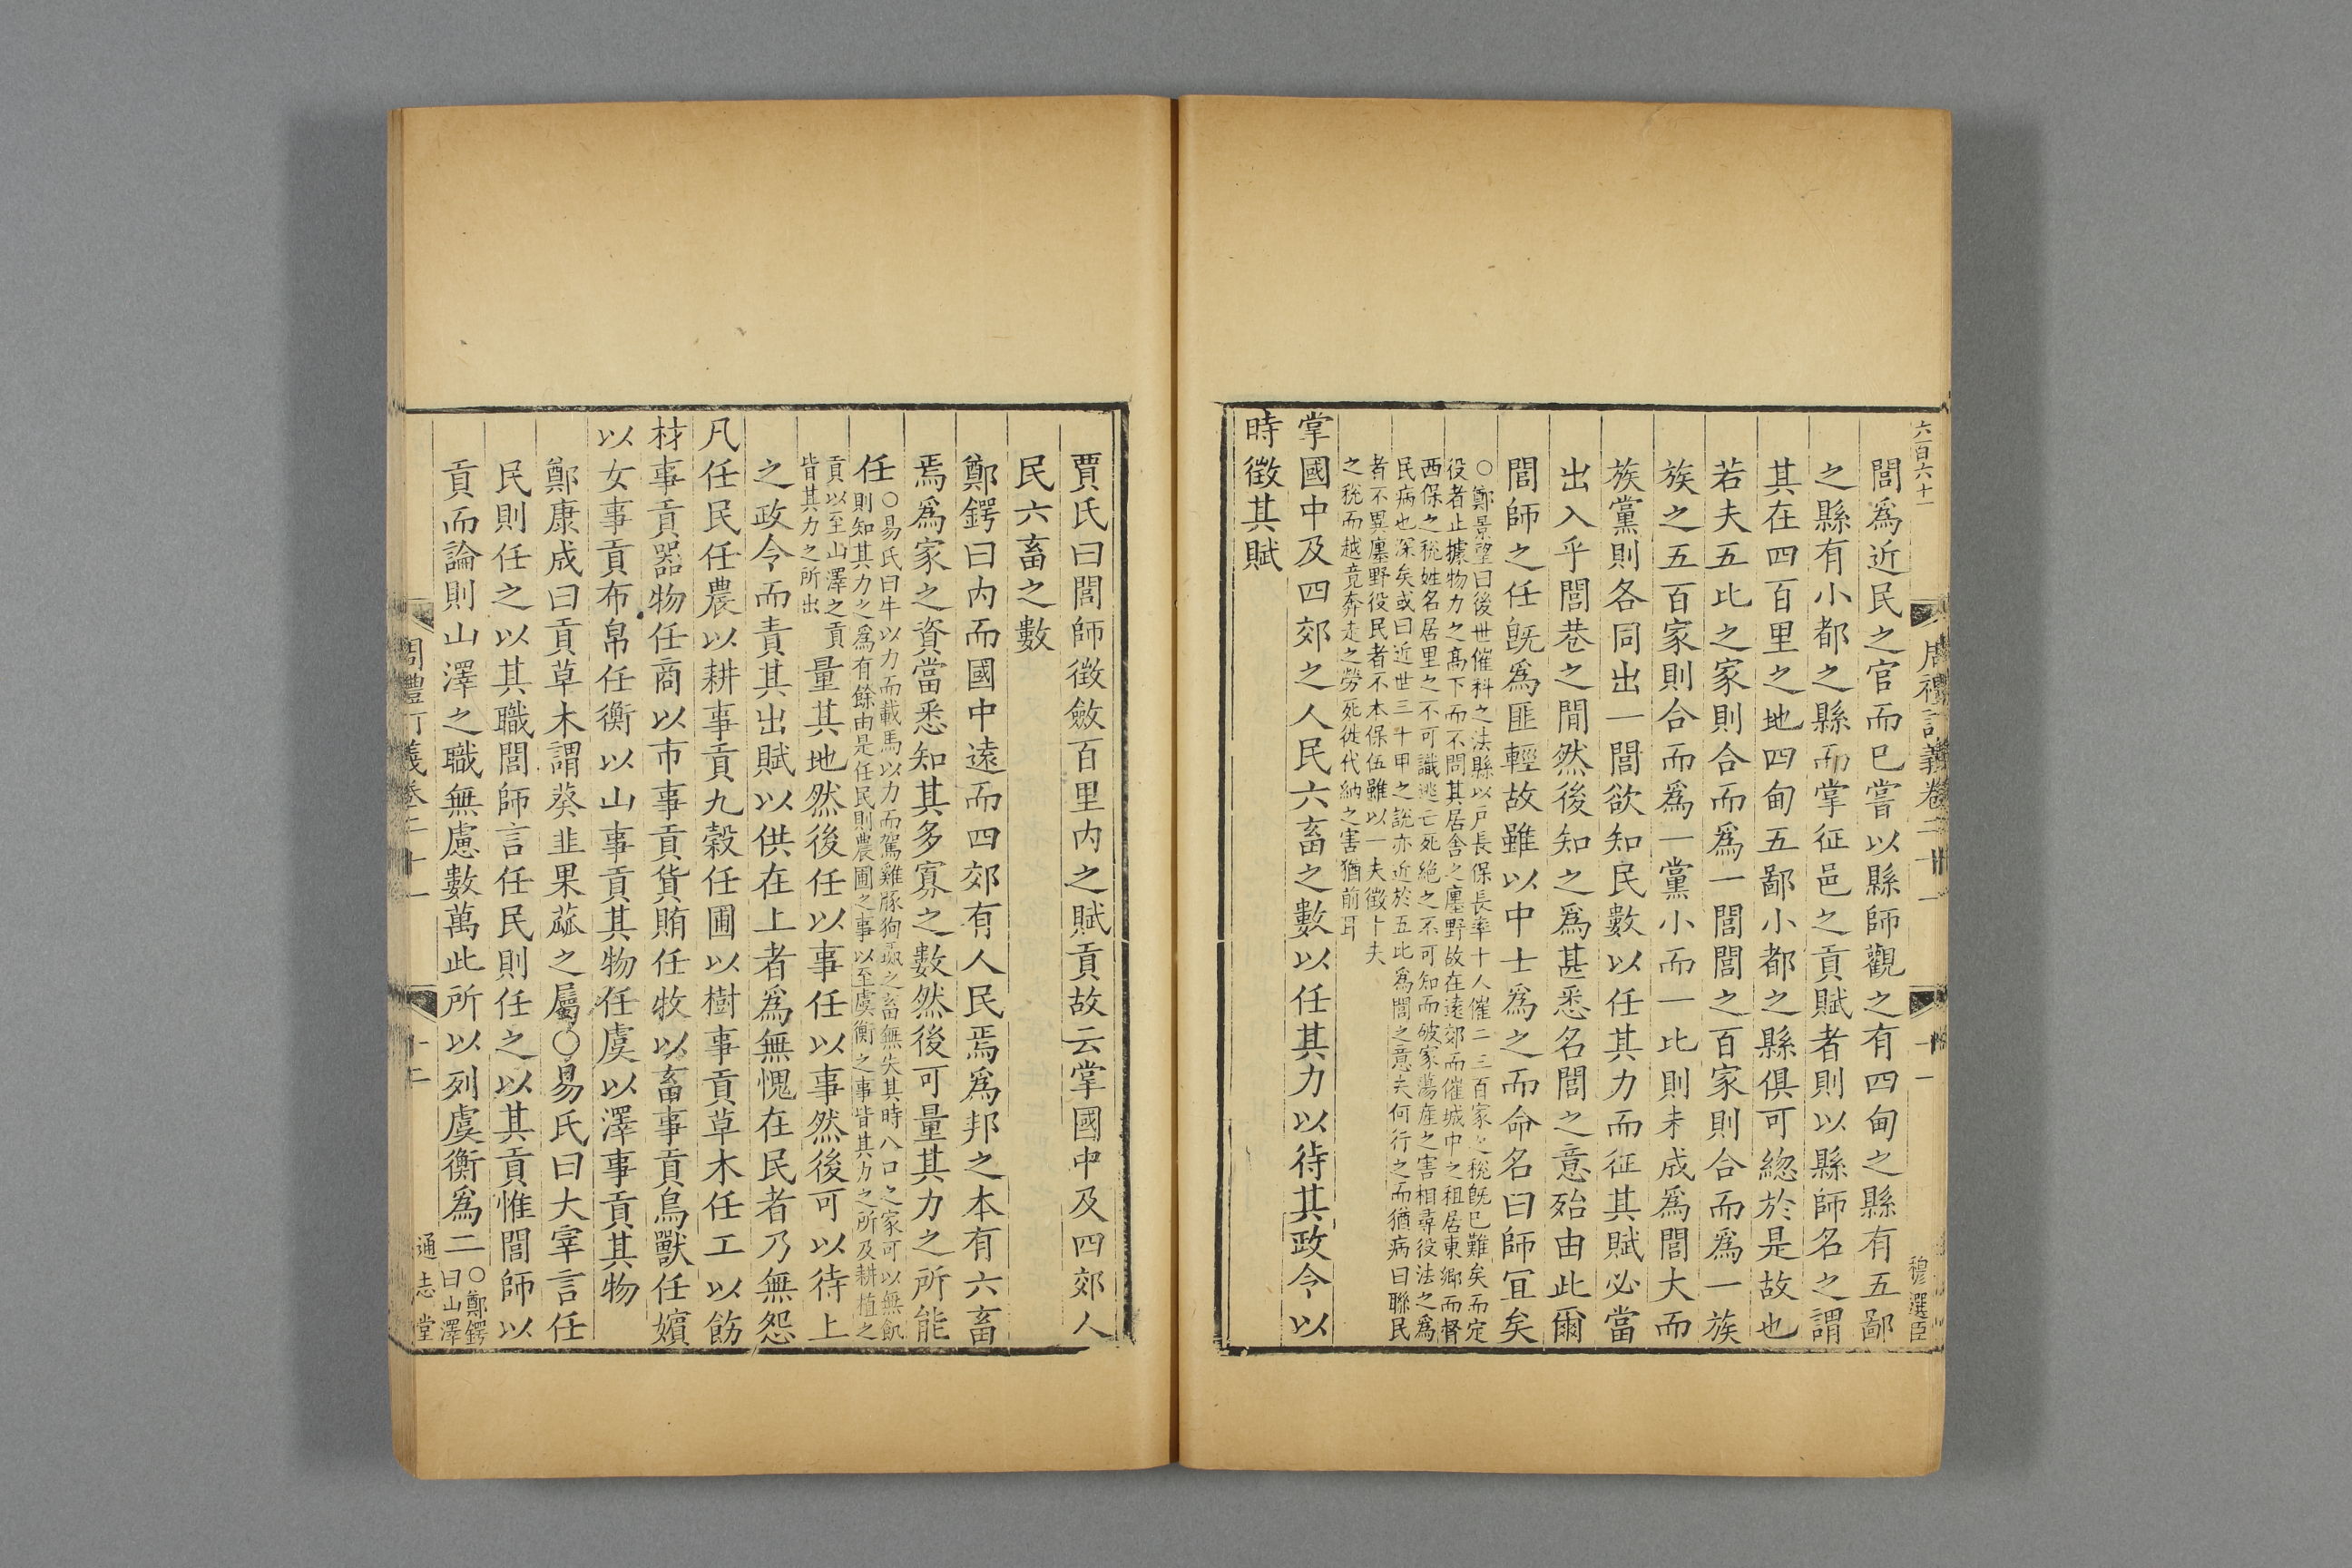 六百六十一
周禮訂義卷二十一
十一
穆選臣
閭爲近民之官而已嘗以縣師觀之有四甸之縣有五鄙
之縣有小都之縣而掌征邑之貢賦者則以縣師名之謂
其在四百里之地四甸五鄙小都之縣俱可緫於是故也
若夫五比之家則合而爲一閭閭之百家則合而爲一族
族之五百家則合而爲一黨小而一比則未成爲閭大而
族黨則各同出一閭欲知民數以任其力而征其賦必當
出入乎閭巷之閒然後知之爲甚悉名閭之意殆由此爾
閭師之任旣爲匪輕故雖以中士爲之而命名曰師宜矣
○鄭景望曰後世催科之法縣以戸長保長率十人催二三百家之稅旣已難矣而定
役者止據物力之髙下而不問其居舍之廛野故在遠郊而催城中之租居東鄉而督
西保之稅姓名居里之不可識逃亡死絶之不可知而破家蕩産之害相尋役法之爲
民病也深矣或曰近世三十甲之說亦近於五比爲閭之意夫何行之而猶病曰聯民
者不異廛野役民者不本保伍雖以一夫徵十夫
之稅而越竟奔走之勞死徙代納之害猶前耳
掌國中及四郊之人民六畜之數以任其力以待其政令以
時徵其賦
賈氏曰閭師徵斂百里内之賦貢故云掌國中及四郊人
民六畜之數
鄭鍔曰内而國中遠而四郊有人民焉爲邦之本有六畜
焉爲家之資當悉知其多寡之數然後可量其力之所能
任
○易氏曰牛以力而載馬以力而駕雞豚狗彘之畜無失其時八口之家可以無飢
則知其力之爲有餘由是任民則農圃之事以至虞衡之事皆其力之所及耕植之
貢以至山澤之貢
皆其力之所出
量其地然後任以事任以事然後可以待上
之政令而責其出賦以供在上者爲無愧在民者乃無怨
凡任民任農以耕事貢九穀任圃以樹事貢草木任工以飭
材事貢器物任商以市事貢貨賄任牧以畜事貢鳥獸任嬪
以女事貢布帛任衡以山事貢其物任虞以澤事貢其物
鄭康成曰貢草木謂葵韭果蓏之屬○易氏曰大宰言任
民則任之以其職閭師言任民則任之以其貢惟閭師以
貢而論則山澤之職無慮數萬此所以列虞衡爲二
○鄭鍔
曰山澤
周禮訂義卷二十一
十二
通志堂